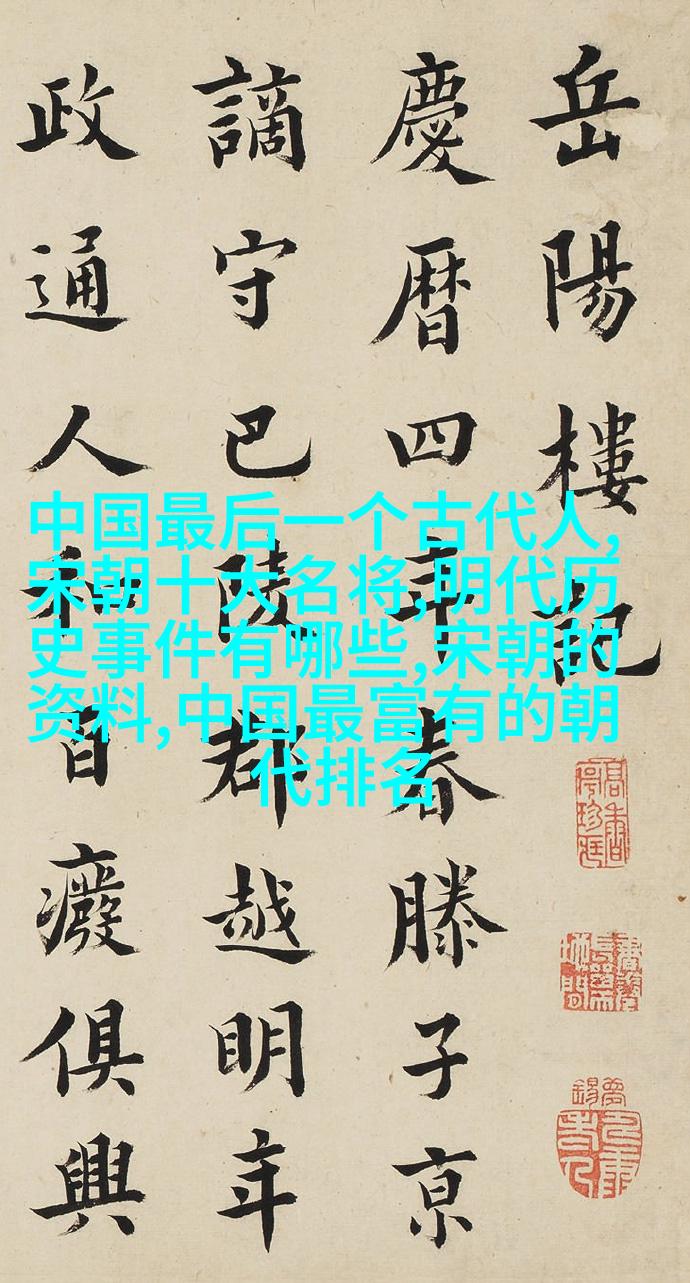 岳陽樓記
慶曆四年春滕子京
謫守巴陵郡越明年
政通人和百廢俱興
中国最后一个古代人,
宋朝十大名将,明代历
史事件有哪些,宋朝的
资料,中国最富有的朝
代排名